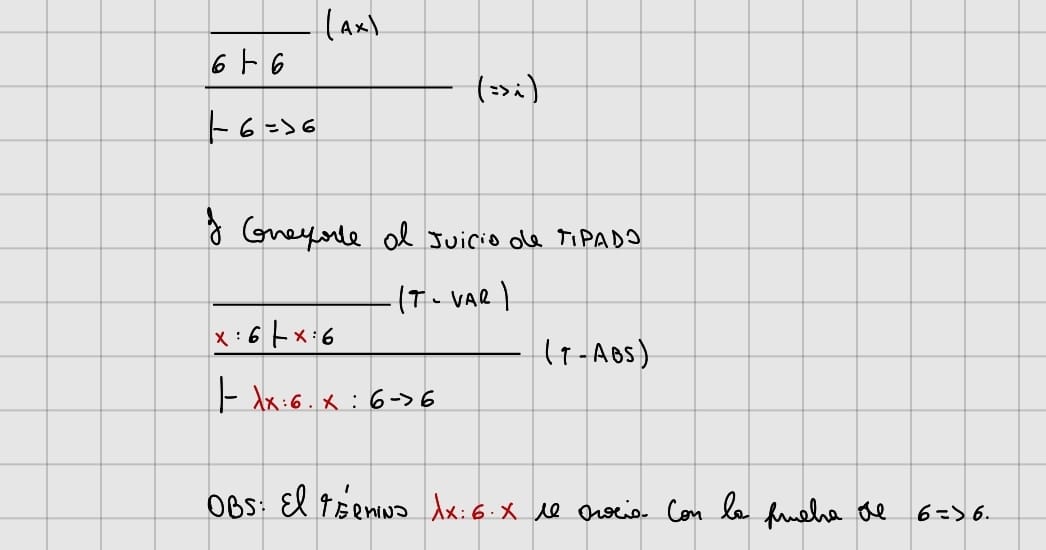 (Ax)
6 ⊢ 6
(=>i)
⊢ 6 => 6
y Convierte al Juicio de TIPADO
(T - VAR)
x : 6 ⊢ x : 6
(T - ABS)
⊢ λx:6. x : 6 -> 6
OBS: El TÉRMINO λx:6.x se asocia con la prueba de 6 => 6.